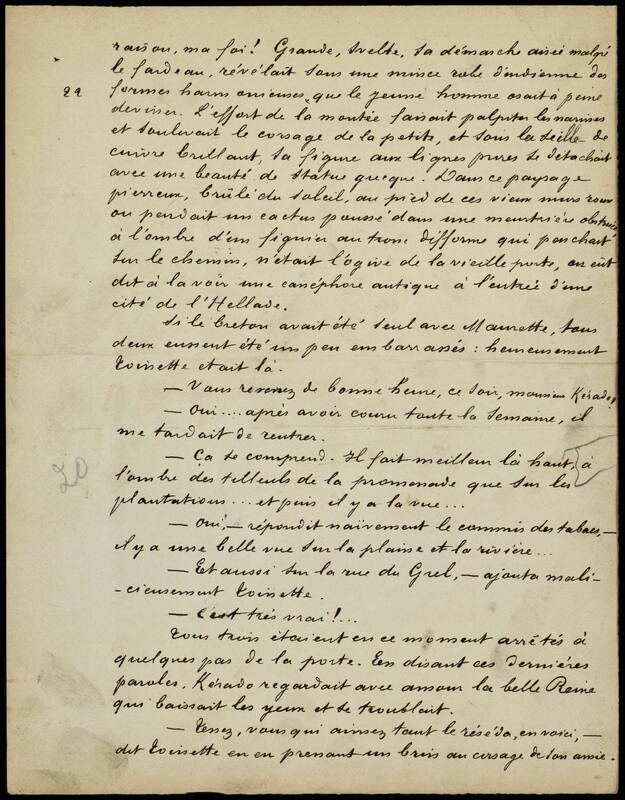 raison, ma foi! Grande, svelte, sa démarche aisée malgré
le fardeau, révélait sous une mince robe d'indienne des
22
formes harmonieuses, que le jeune homme osait à peine
deviner. L'effort de la montée faisait palpiter les narines
et soulevait le corsage de la petite, et sous la seille de
cuivre brillant, sa figure aux lignes pures se détachait
avec une beauté de statue grecque. Dans ce paysage
pierreux, brûlé du soleil, au pied de ces vieux murs roux
où pendait un cactus poussé dans une meurtrière obstruée
à l'ombre d'un figuier au tronc difforme qui penchait
sur le chemin, n'était l'ogive de la vieille porte, on eût
dit à la voir une canéphore antique à l'entrée d'une
cité de l'Hellade.
Si le breton avait été seul avec Maurette, tous
deux eussent été un peu embarrassés: heureusement
Toinette était là.
— Vous revenez de bonne heure, ce soir, monsieur Kérado!
— Oui.... après avoir couru toute la semaine, il
me tardait de rentrer.
— Ça se comprend. Il fait meilleur là haut, à
20
l'ombre des tilleuls de la promenade que sur les
plantations... et puis il y a la vue...
— Oui, — répondit naïvement le commis des tabacs, —
il y a une belle vue sur la plaine et la rivière...
— Et aussi sur la rue du Grel, — ajouta mali-
-cieusement Toinette.
— C'est très vrai!...
Tous trois étaient en ce moment arrêtés à
quelques pas de la porte. En disant ces dernières
paroles, Kérado regardait avec amour la belle Reine
qui baissait les yeux et se troublait.
— Tenez, vous qui aimez tant le réséda, en voici, —
dit Toinette en en prenant un brin au corsage de son amie.